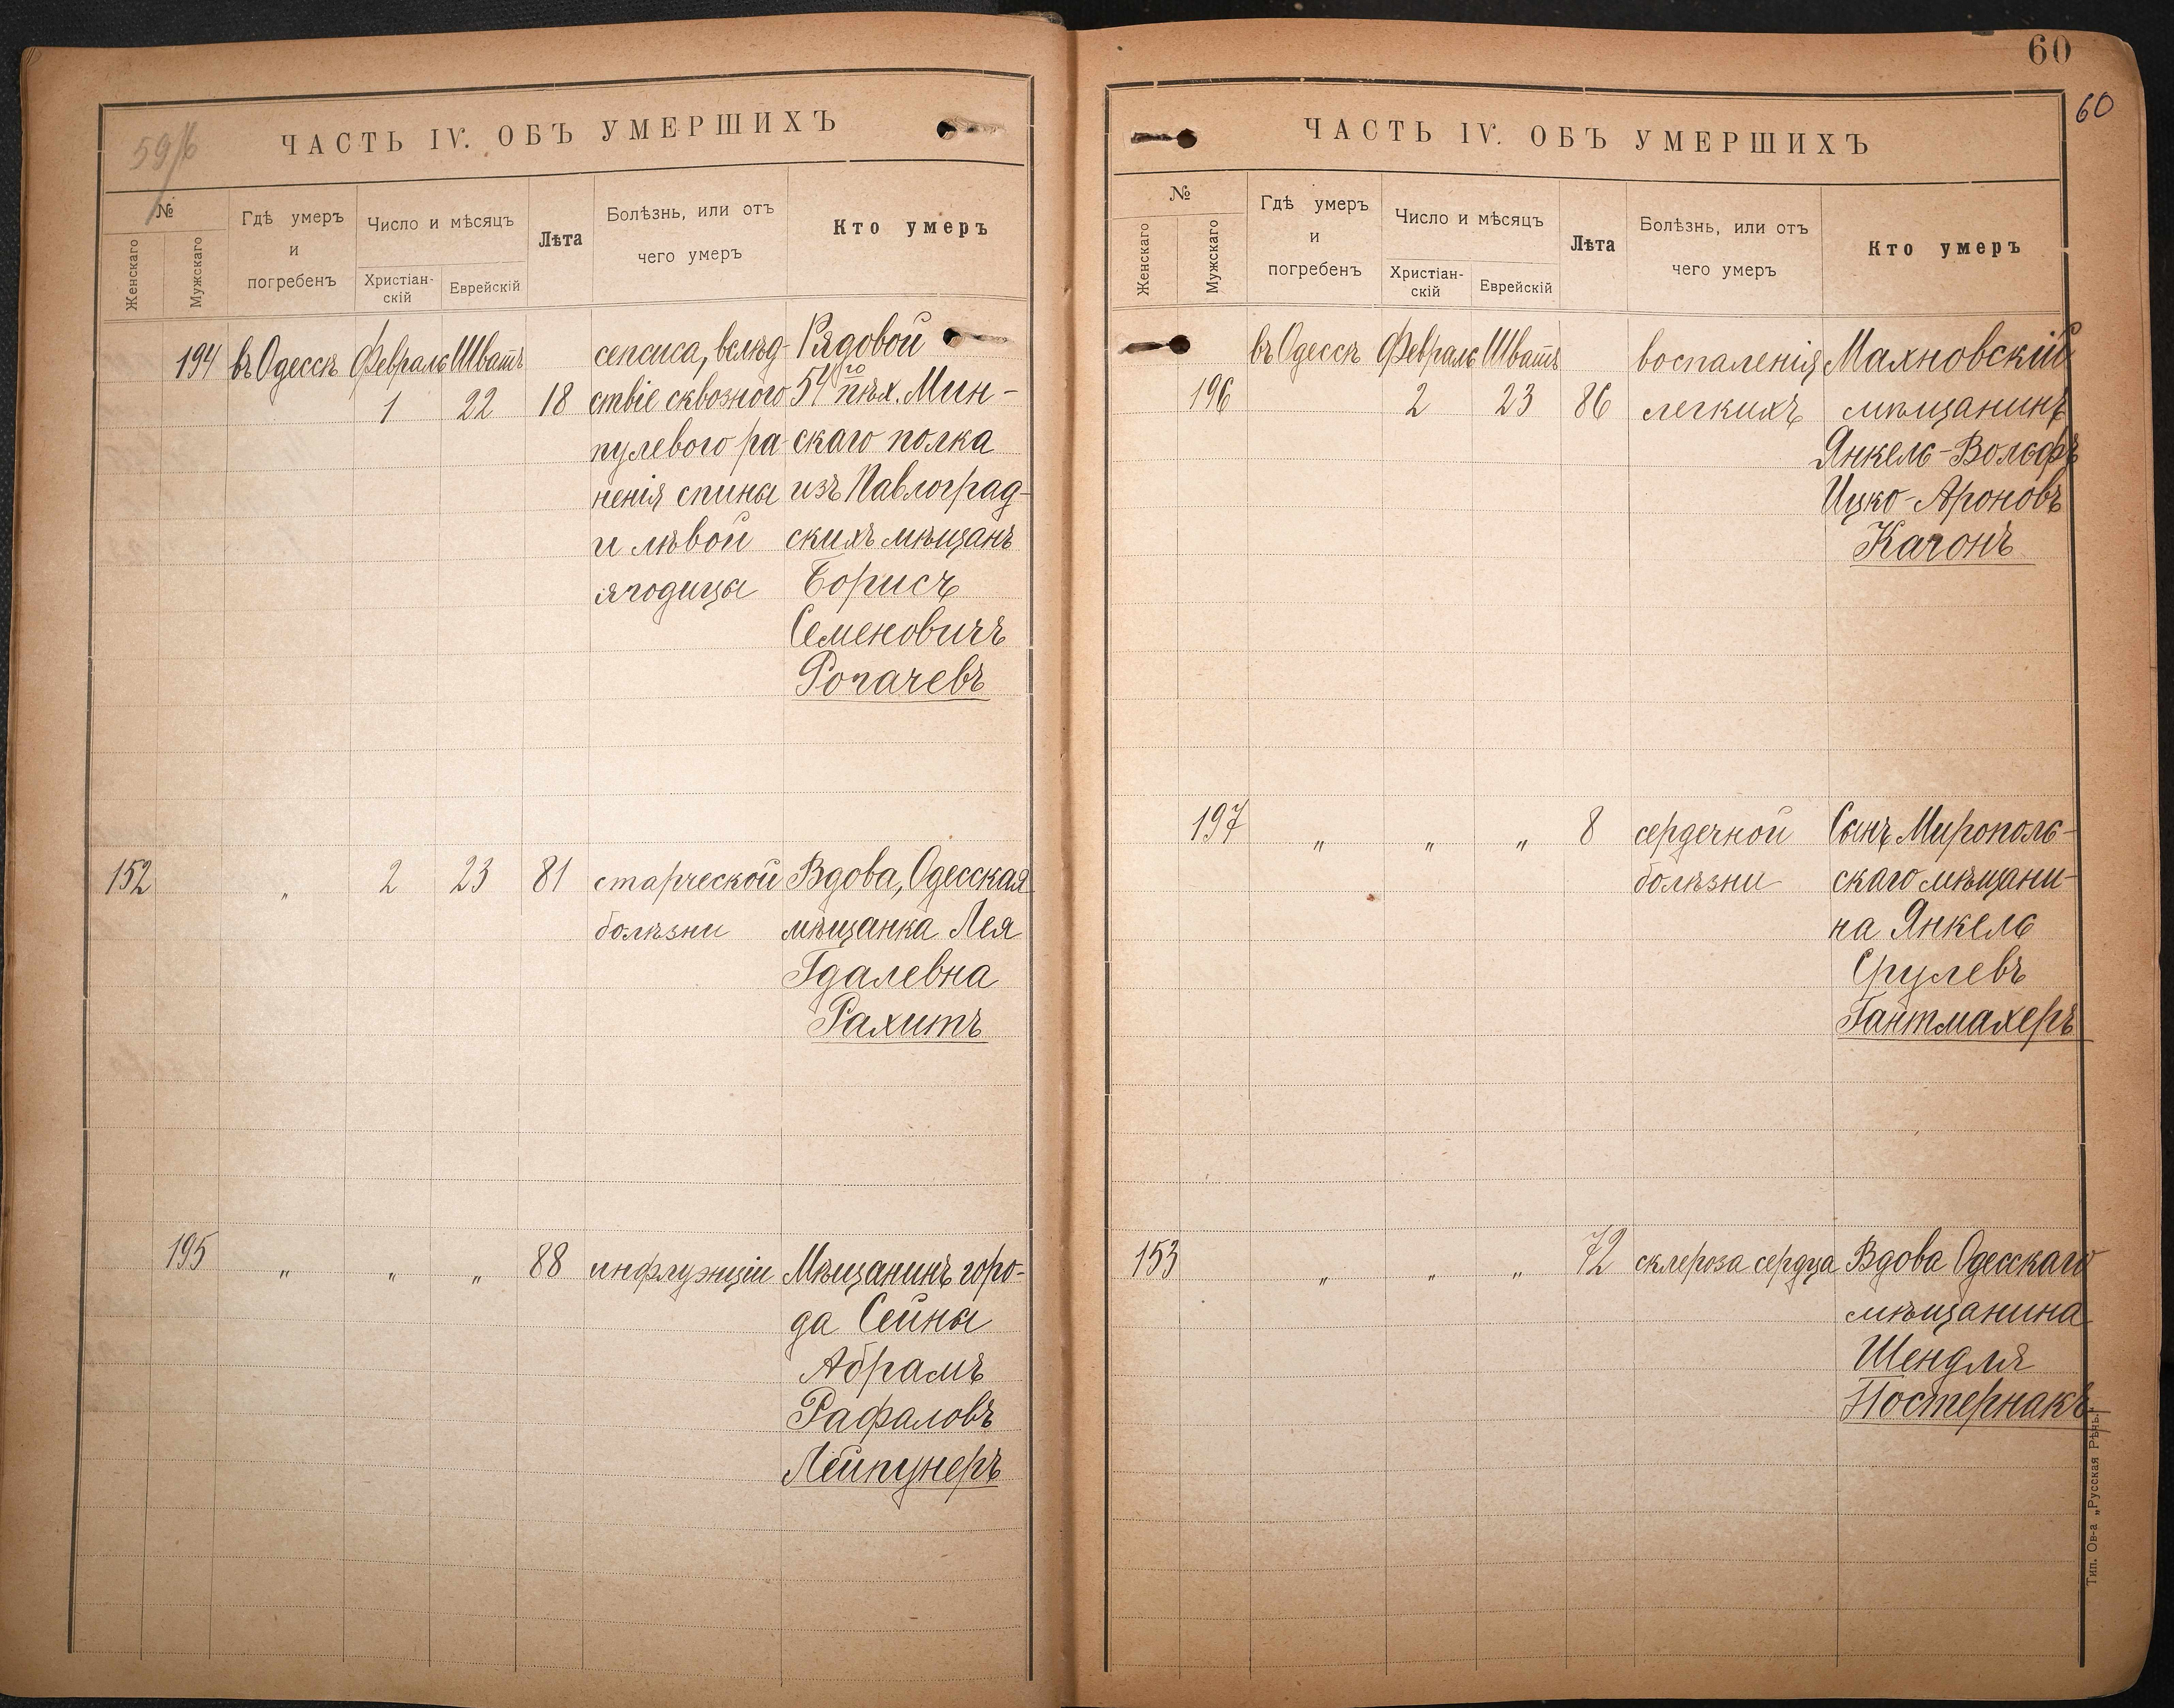 59/б
ЧАСТЬ IV. ОБЪ УМЕРШИХЪ
№
Женскаго
Мужскаго
Гдѣ умеръ
и
погребенъ
Число и мѣсяцъ
Христіан-
скій
Еврейскій
Лѣта
Болѣзнь, или отъ
чего умеръ
Кто умеръ
194 въ Одессѣ Февраль Шватъ сепсиса, вслѣд- Рядовой
1 22 18 ствіе сквозного 54го пѣх. Мин-
пулевого ра- скаго полка
ненія спины изъ Павлоград-
и лѣвой скихъ мѣщанъ
ягодицы Борисъ
Семеновичъ
Рогачевъ
152 " 2 23 81 старческой Вдова, Одесская
болѣзни мѣщанка Лея
Гдалевна
Рахитъ
195 " " " 88 инфлуэнціи Мѣщанинъ горо-
да Сейны
Абрамъ
Рафаловъ
Лейпунеръ
60
60
ЧАСТЬ IV. ОБЪ УМЕРШИХЪ
№
Женскаго
Мужскаго
Гдѣ умеръ
и
погребенъ
Число и мѣсяцъ
Христіан-
скій
Еврейскій
Лѣта
Болѣзнь, или отъ
чего умеръ
Кто умеръ
въ Одессѣ Февраль Шватъ воспаленія Махновскій
196 2 23 86 легкихъ мѣщанинъ
Янкель-Вольфъ
Ицко-Ароновъ
Кагонъ
197 " " " 8 сердечной Сынъ Мирополь-
болѣзни скаго мѣщани-
на Янкель
Срулевъ
Гантмахеръ
153 " " " 72 склероза сердца Вдова Одесскаго
мѣщанина
Шендля
Постернакъ
Тип. Ов-а „Русская Рѣчь.“